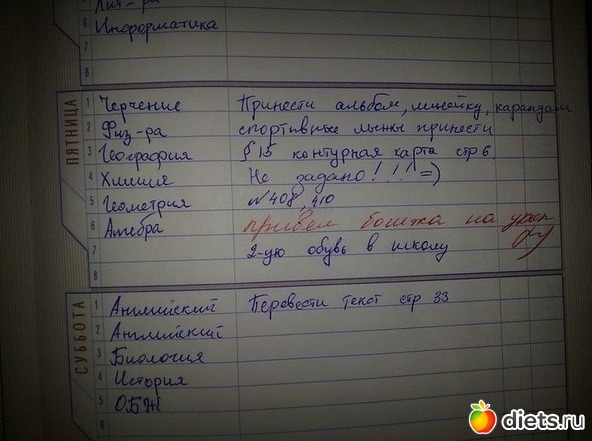 Лит-ра
6 Информатика
7
8
ПЯТНИЦА
1 Черчение Принести альбом, линейку, карандаш
2 Физ-ра спортивные лыжы принести
3 География § 15 контурная карта стр 6.
4 Химия Не задано! !!! =)
5 Геометрия № 408, 410
6 Алгебра привел бомжа на урок
7 2-ую обувь в школу
8
СУББОТА
1 Английский Перевести текст стр 33
2 Английский
3 Биология
4 История
5 ОБЖ
6
diets.ru